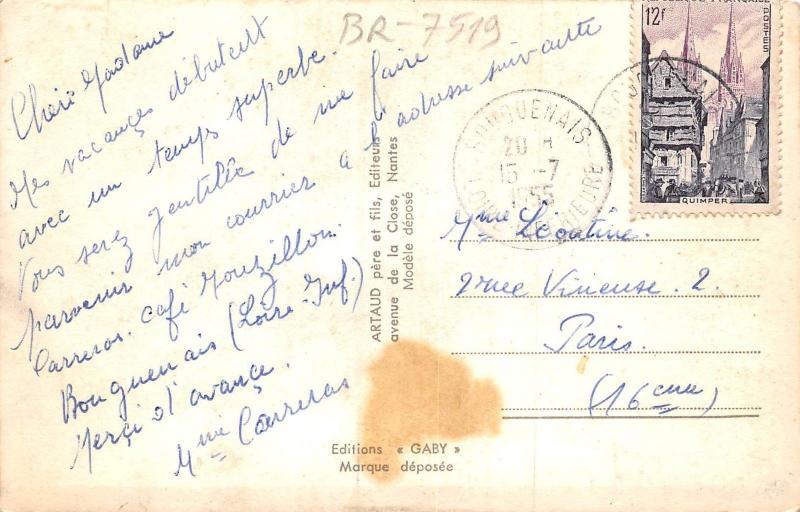 BR-7519
Chère Madame
Mes vacances débutent
avec un temps superbe.
Vous serez gentille de me faire
parvenir mon courrier à l'adresse suivante
Carreras. café Mouzillon.
Bouguenais (Loire-Inf.)
Merçi d'avance.
Mme Carreras
ARTAUD père et fils, Editeurs
avenue de la Close, Nantes
Modèle déposé
Editions « GABY »
Marque déposée
BOUGUENAIS
20 H
15 -7
1955
LOIRE INFERIEURE
12F
POSTES
QUIMPER
Mme
2 rue Vineuse. 2.
Paris.
(16eme)